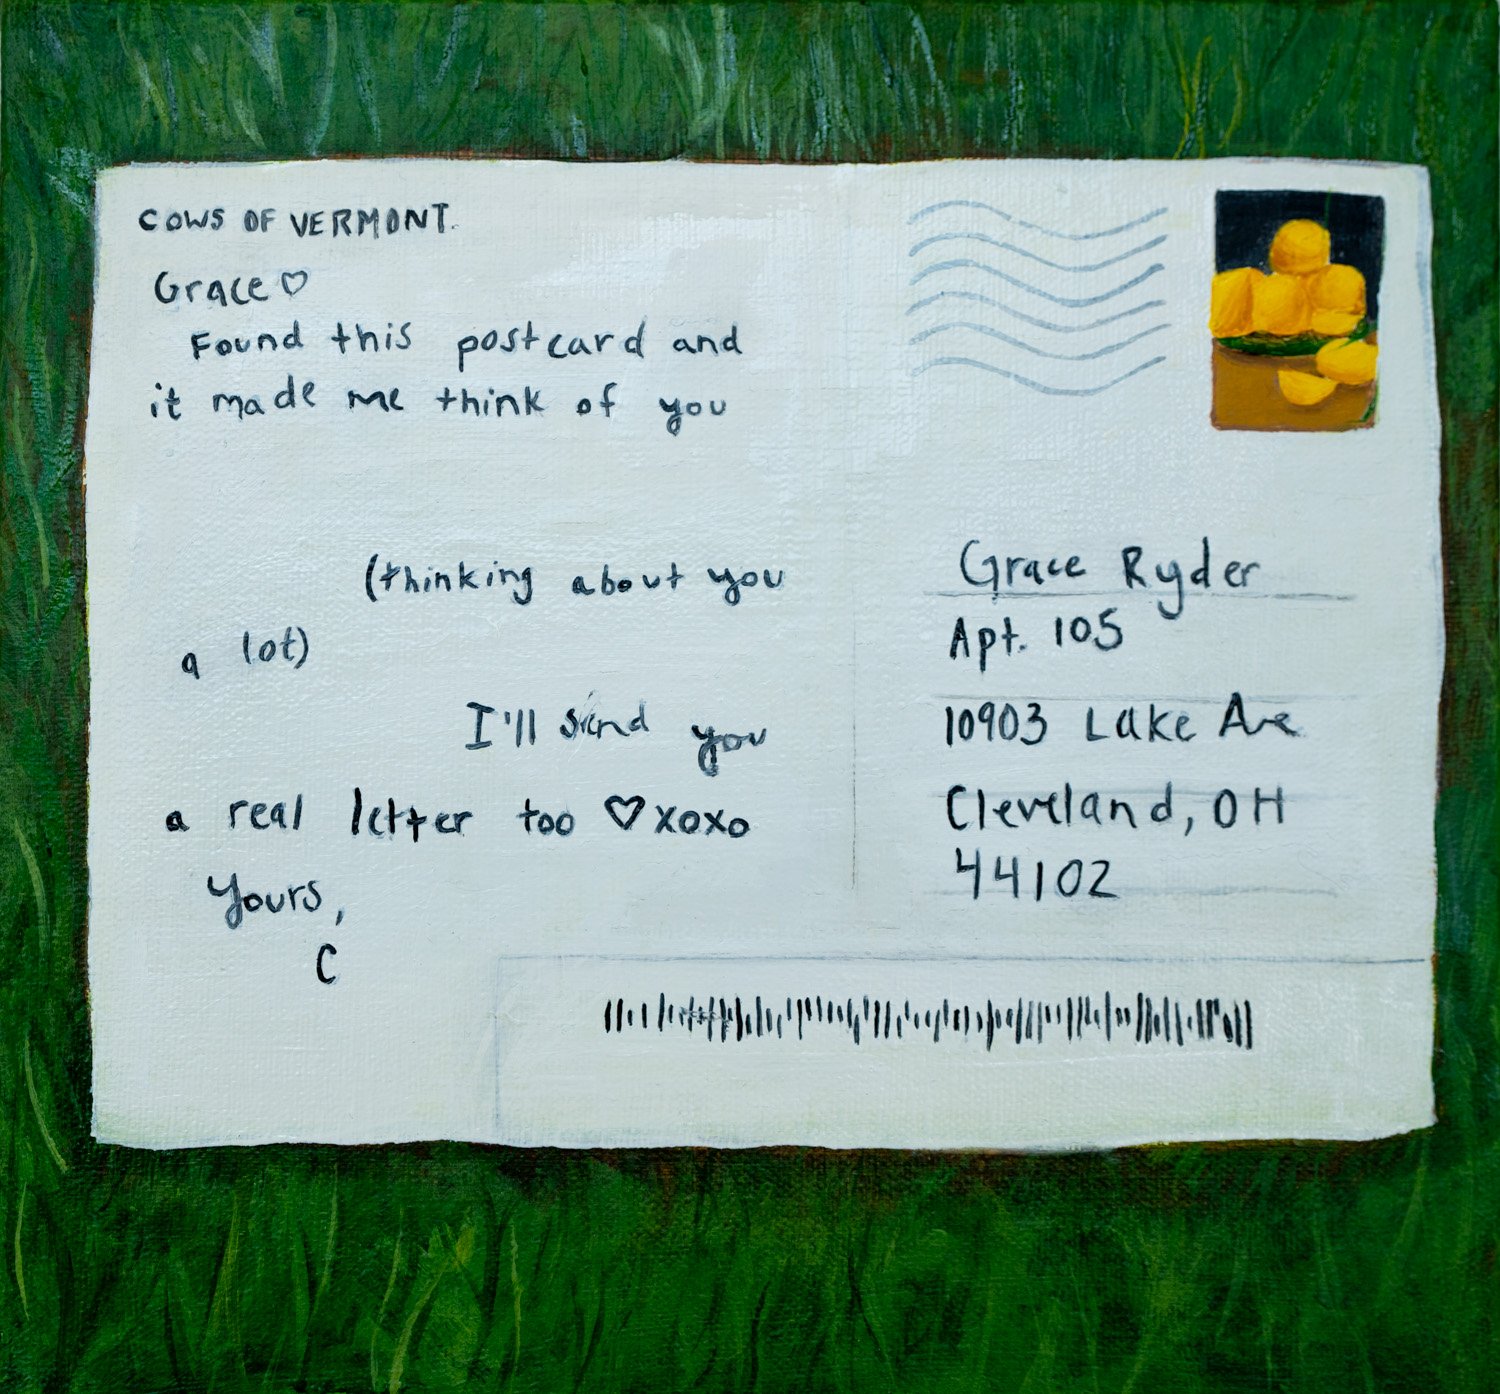 COWS OF VERMONT.
Grace ♡
Found this postcard and
it made me think of you
(thinking about you
a lot)
I'll send you
a real letter too ♡ xoxo
Yours,
C
Grace Ryder
Apt. 105
10903 Lake Ave
Cleveland, OH
44102